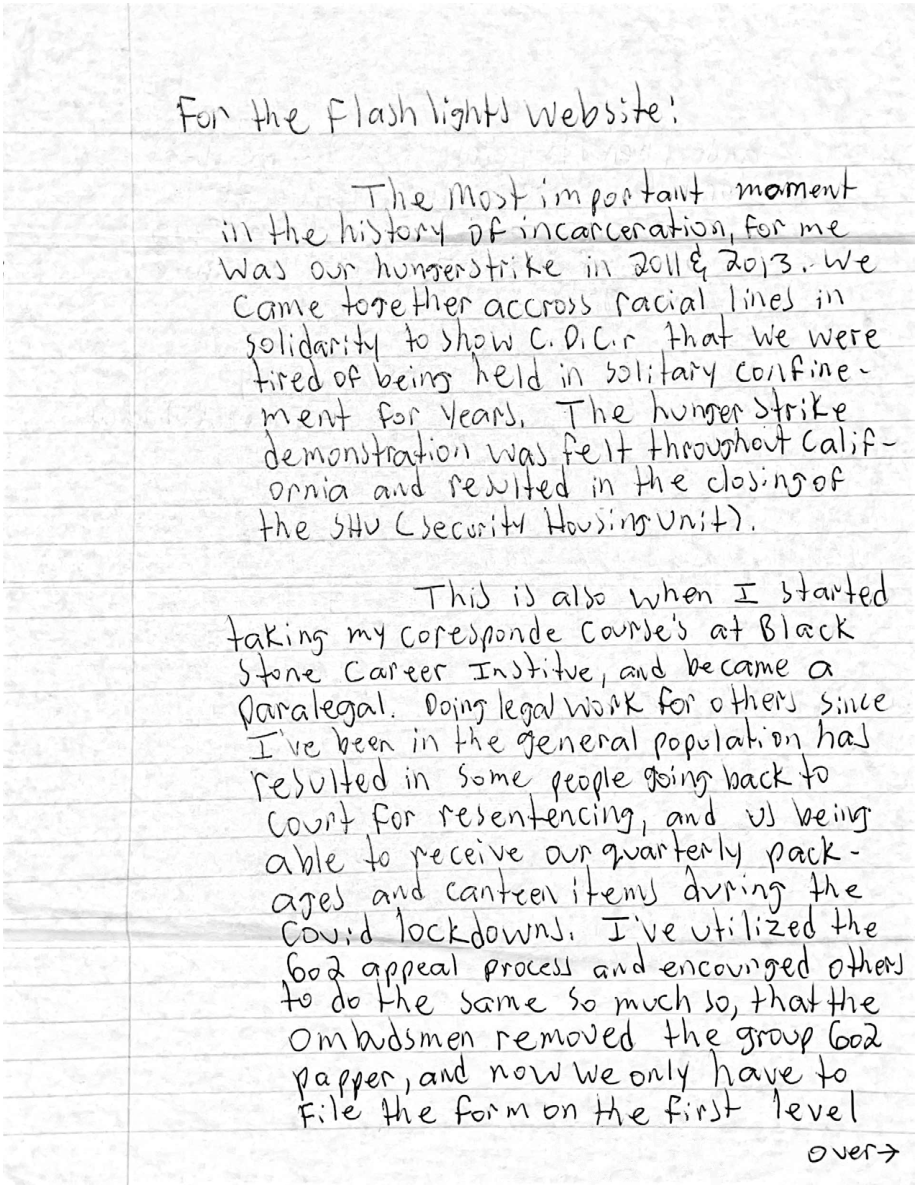 For the Flashlights Website:
The Most important moment
in the history of incarceration, for me
was our hungerstrike in 2011 & 2013. We
came together accross racial lines in
solidarity to show C.D.C.r that we were
tired of being held in solitary confine-
ment for years. The hunger strike
demonstration was felt throughout Calif-
ornia and resulted in the closing of
the SHU (Security Housing Unit).
This is also when I started
taking my coresponde course's at Black
Stone Career Institue, and became a
paralegal. Doing legal work for others since
I've been in the general population has
resulted in some people going back to
court for resentencing, and us being
able to receive our quarterly pack-
ages and canteen items during the
Covid lockdowns. I've utilized the
602 appeal process and encourged others
to do the same so much so, that the
Ombudsmen removed the group 602
papper, and now we only have to
File the form on the first level
over→